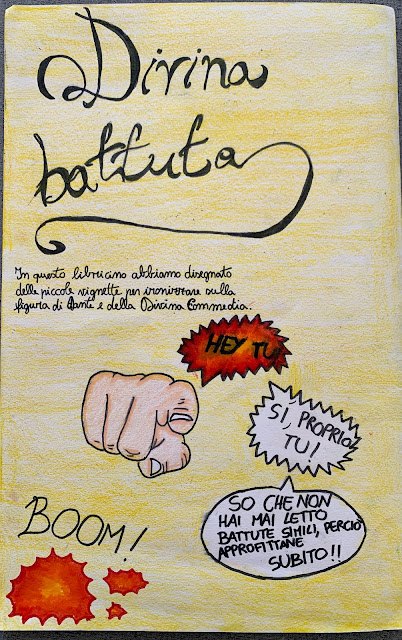 Divina
battuta
In questo libricino abbiamo disegnato
delle piccole vignette per ironizzare sulla
figura di Dante e della Divina Commedia.
HEY TU!
SÌ, PROPRIO
TU!
SO CHE NON
HAI MAI LETTO
BATTUTE SIMILI, PERCIÒ
APPROFITTANE
SUBITO!!
BOOM!